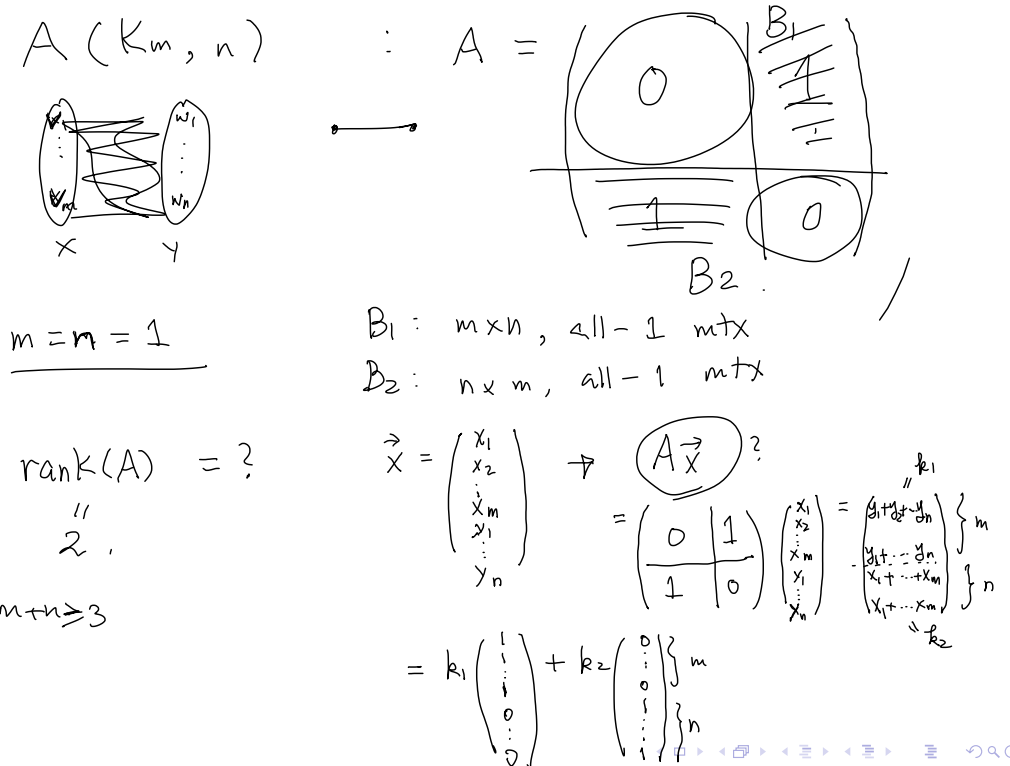 A (Km, n) : A =
B1
0 1
1 0
B2 .
v1 w1
⋮ ⋮
vm wn
X Y
m = n = 1
B1 : m×n, all-1 mtx
B2 : n×m, all-1 mtx
rank(A) = ?
"
2 .
m+n≥3
x⃗ = ( x1 x2 ⋮ xm y1 ⋮ yn ) → Ax⃗ ?
= ( 0 1 1 0 ) ( x1 x2 ⋮ xm y1 ⋮ yn ) = ( y1+y2+..yn y1+...yn x1+...+xm x1+...xm ) } m } n
" k1
" k2
= k1 ( 1 1 ⋮ 1 0 ⋮ 0 ) + k2 ( 0 ⋮ 0 1 ⋮ 1 ) } m } n